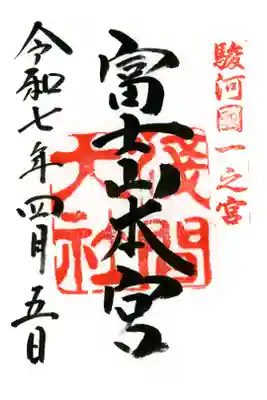 駿河國一之宮
富士山本宮
淺間
大社
令和七年四月五日